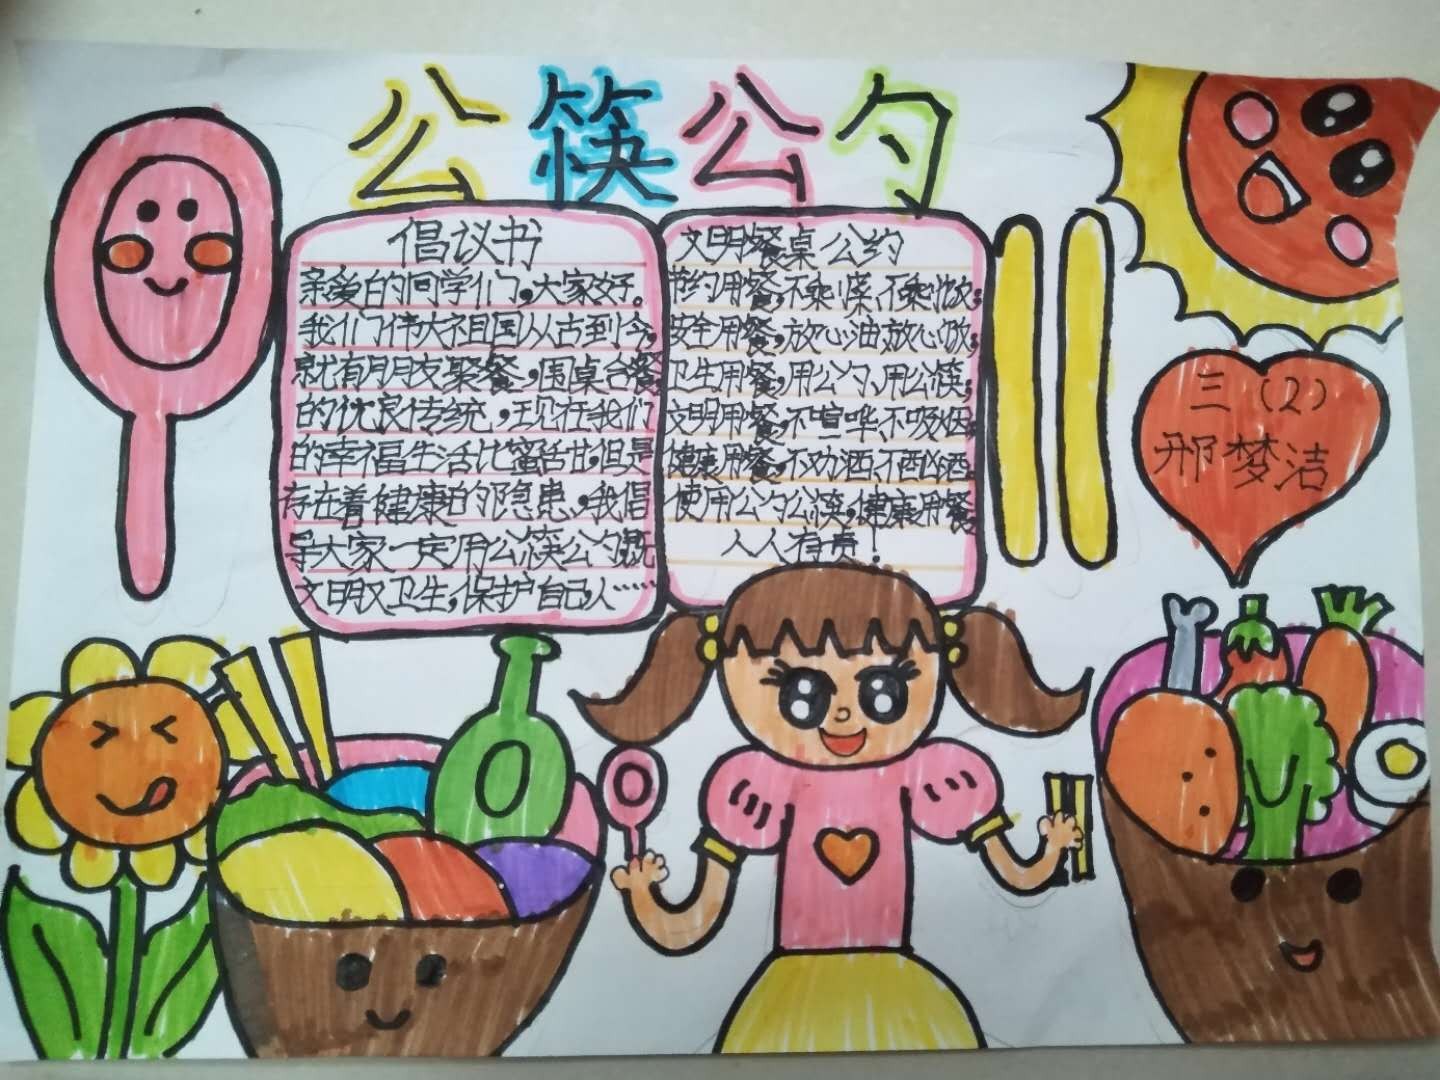 公筷公勺
倡议书
亲爱的同学们,大家好。
我们伟大祖国从古到今,
就有朋友聚餐,围桌合餐
的优良传统,现在我们
的幸福生活比蜜还甜,但是
存在着健康的隐患,我倡
导大家一定用公筷公勺既
文明又卫生,保护自己人……
文明餐桌公约
节约用餐,不剩菜、不剩饭;
安全用餐,放心油放心饭;
卫生用餐,用公勺、用公筷;
文明用餐,不喧哗、不吸烟;
健康用餐,不劝酒、不酗酒。
使用公勺公筷,健康用餐,
人人有责!
三(2)
邢梦洁